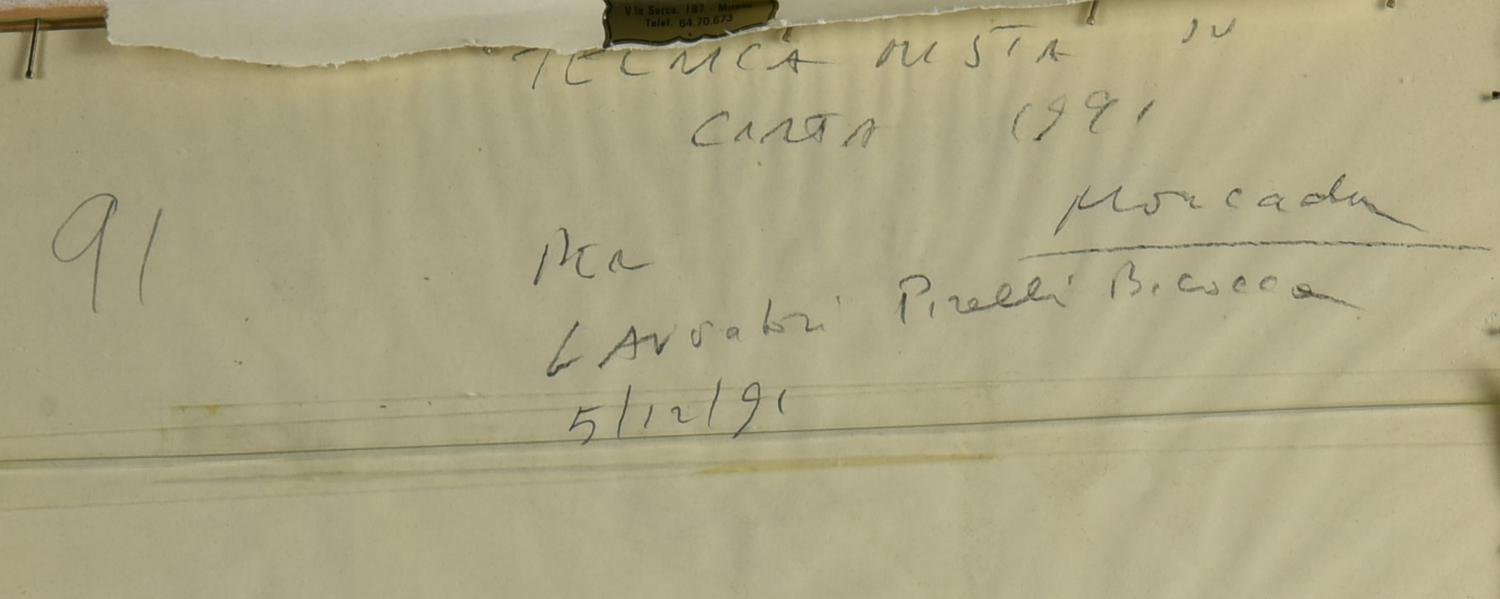 V.le Sarca, 187 - Milano
Telef. 64.70.673
TECNICA MISTA SU
CARTA 1991
Moncada
91
PER
LAVoratori Pirelli Bicocca
5/12/91